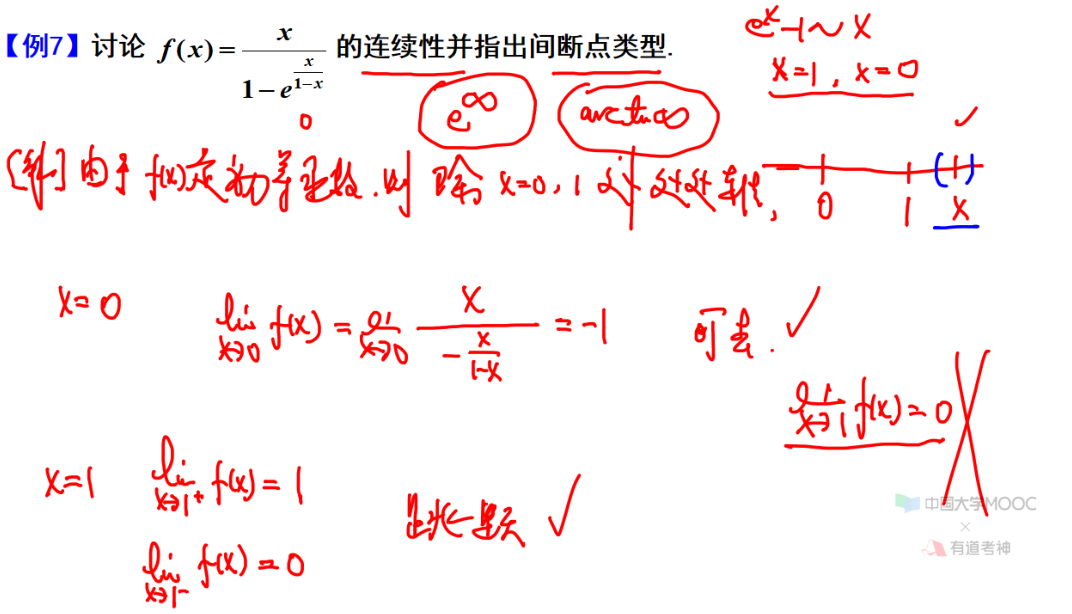 【例7】讨论 f(x) = x / (1 − e^{x/(1−x)}) 的连续性并指出间断点类型.
e^x − 1 ~ x
x=1, x=0
e^∞
arctan ∞
0
[解] 由于 f(x) 是初等函数, 则 除 x=0, 1 外 处处连续,
0 1 x
x=0
lim_{x→0} f(x) = lim_{x→0} x / (−x/(1−x)) = −1 可去.
lim_{x→1} f(x) = 0
x=1 lim_{x→1⁺} f(x) = 1
跳跃
lim_{x→1⁻} f(x) = 0
中国大学MOOC
×
有道考神